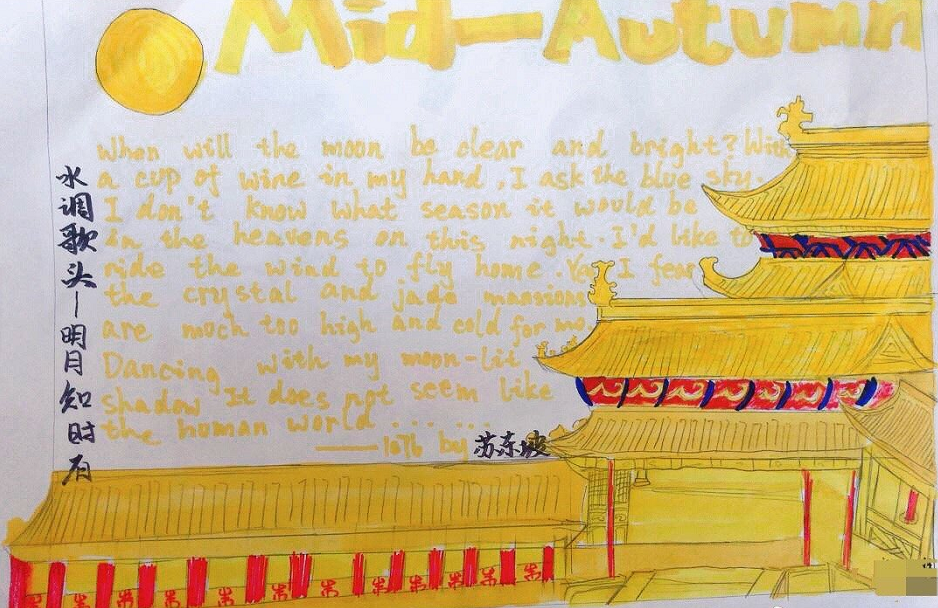 Mid-Autumn
水调歌头—明月知时有
When will the moon be clear and bright? With
a cup of wine in my hand, I ask the blue sky.
I don't know what season it would be
in the heavens on this night. I'd like to
ride the wind to fly home. Yet I fear
the crystal and jade mansions
are much too high and cold for me.
Dancing with my moon-lit
shadow It does not seem like
the human world ... ...
——1076 by 苏东坡